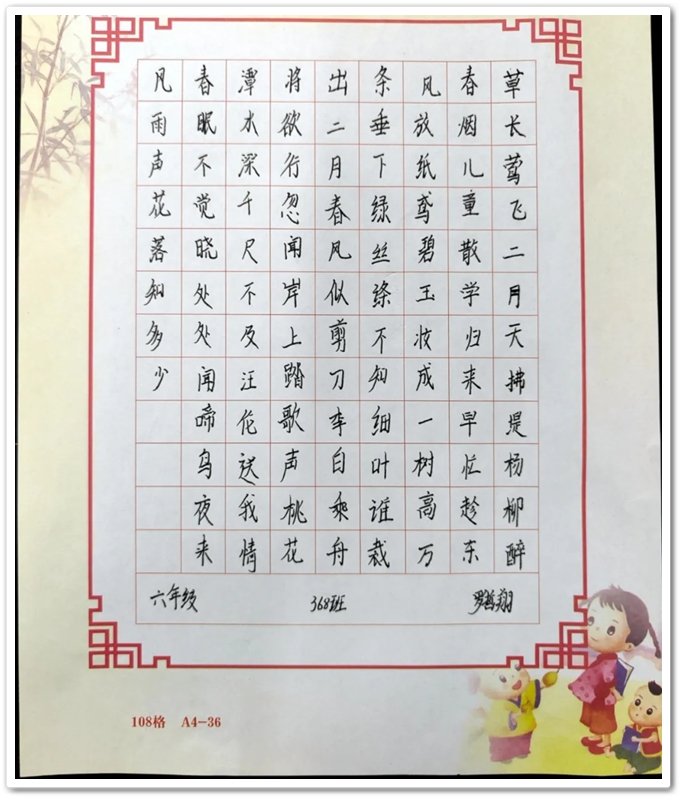 草长莺飞二月天拂堤杨柳醉
春烟儿童散学归来早忙趁东
风放纸鸢碧玉妆成一树高万
条垂下绿丝绦不知细叶谁裁
出二月春风似剪刀李白乘舟
将欲行忽闻岸上踏歌声桃花
潭水深千尺不及汪伦送我情
春眠不觉晓处处闻啼鸟夜来
风雨声花落知多少
六年级 368班
108格 A4-36